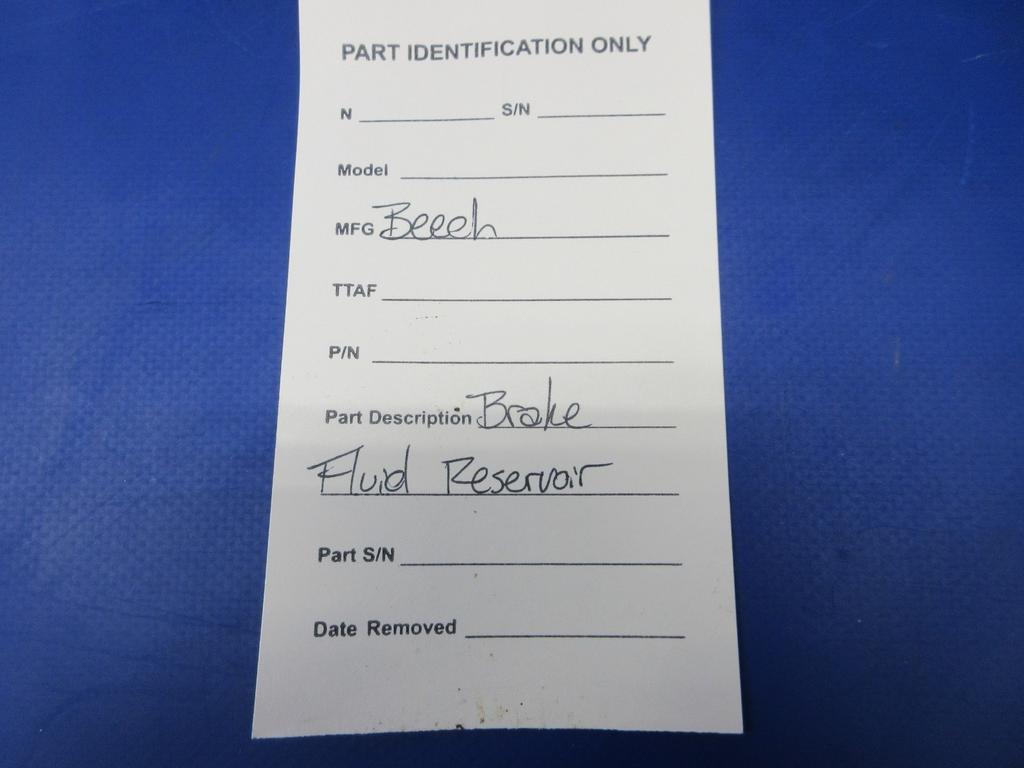 PART IDENTIFICATION ONLY
N S/N
Model
MFG Beech
TTAF
P/N
Part Description Brake
Fluid Reservoir
Part S/N
Date Removed